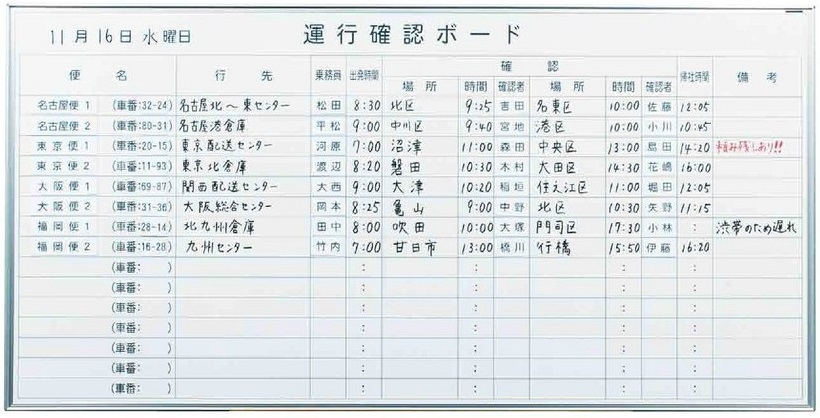 11月16日 水曜日 運行確認ボード
便名 行先 乗務員 出会時間 確認 帰社時間 備考
場所 時間 確認者 場所 時間 確認者
名古屋便1 (車番:32-24) 名古屋北〜東センター 松田 8:30 北区 9:25 吉田 名東区 10:00 佐藤 12:05
名古屋便2 (車番:80-31) 名古屋港倉庫 平松 9:00 中川区 9:40 宮地 港区 10:00 小川 10:45
東京便1 (車番:20-15) 東京配送センター 河原 7:00 沼津 11:00 森田 中央区 13:00 島田 14:20 積み残しあり!!
東京便2 (車番:11-93) 東京北倉庫 渡辺 8:20 磐田 10:30 木村 大田区 14:30 花嶋 16:00
大阪便1 (車番:69-87) 関西配送センター 大西 9:00 大津 10:20 稲垣 住之江区 11:00 堀田 12:05
大阪便2 (車番:31-36) 大阪総合センター 岡本 8:25 亀山 9:00 中野 北区 10:30 矢野 11:15
福岡便1 (車番:28-14) 北九州倉庫 田中 8:00 吹田 10:00 大塚 門司区 17:30 小林 : 渋帯のため遅れ
福岡便2 (車番:16-28) 九州センター 竹内 7:00 甘日市 13:00 橋川 行橋 15:50 伊藤 16:20
(車番: ) : : : :
(車番: ) : : : :
(車番: ) : : : :
(車番: ) : : : :
(車番: ) : : : :
(車番: ) : : : :
(車番: ) : : : :